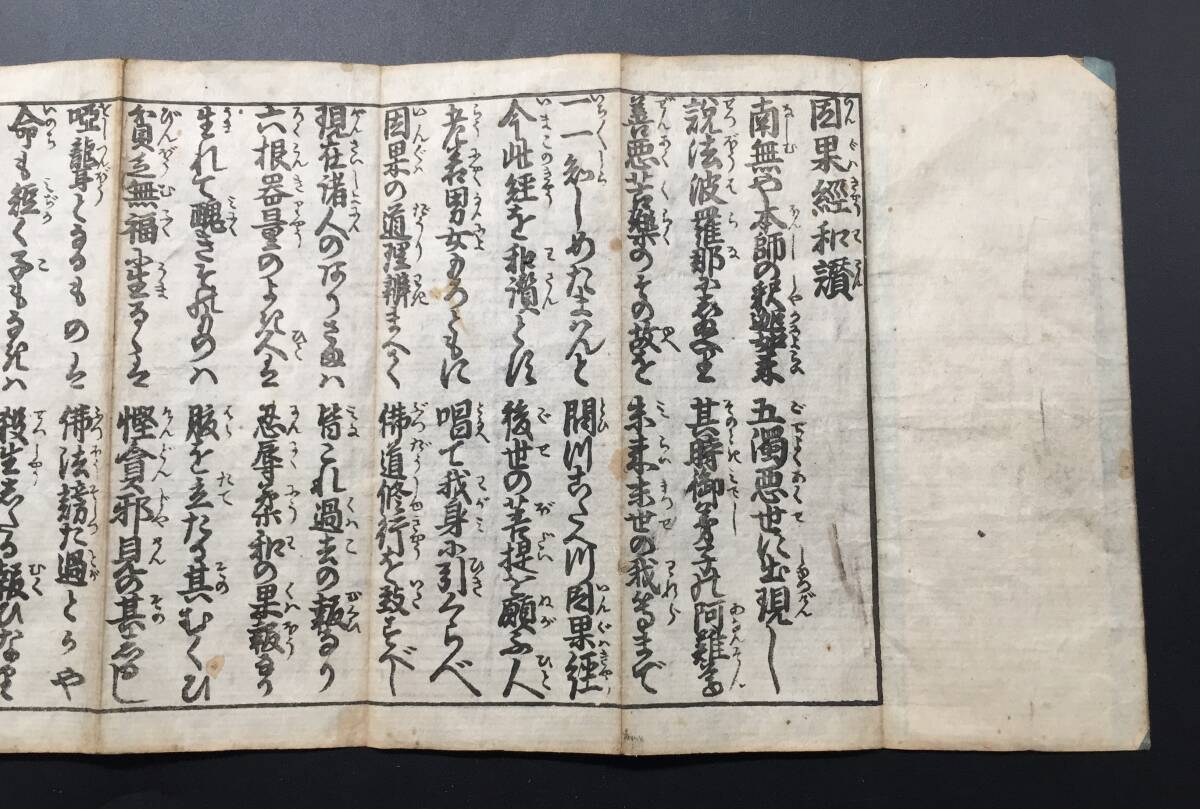 因果經和讃
南無や本師の釈迦如来 五濁悪世に出現し
説法波羅那 其時御弟子の阿難尊
善悪苦樂のその故を 未来末世の我等まで
一一知しめたまへんと 問川 因果經
今此経を和讃とし 後世の菩提を願ふ人
老若男女もろともに 唱て我身に引くらべ
因果の道理辨まへて 佛道修行を致すべし
現在諸人のありさまハ 皆これ過去の報なり
六根器量のよき人は 忍辱柔和の果報なり
生れて醜きそのものハ 腹を立たる其むくひ
貧乏無福に生るゝは 慳貪邪見の其しるし
啞聾となるものは 佛法謗た過とかや
命も短く子もなきハ 殺生したる報ひなり